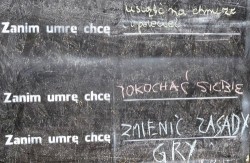 usiąść na chmurze
Zanim umrę chcę
Zanim umrę chcę POKOCHAĆ SIEBIE
Zanim umrę chcę ZMIENIĆ ZASADY
GRY